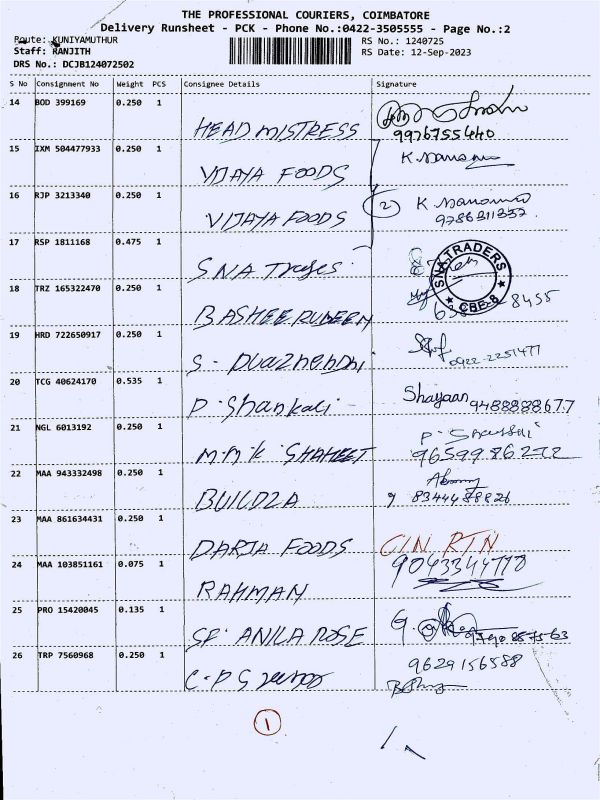 THE PROFESSIONAL COURIERS, COIMBATORE
Delivery Runsheet - PCK - Phone No.:0422-3505555 - Page No.:2
Route: KUNIYAMUTHUR RS No.: 1240725
Staff: RANJITH RS Date: 12-Sep-2023
DRS No.: DCJB124072502
S No Consignment No Weight PCS Consignee Details Signature
14 BOD 399169 0.250 1
HEAD MISTRESS 9976755440
15 IXM 504477933 0.250 1
VIJAYA FOODS
16 RJP 3213340 0.250 1
VIJAYA FOODS 2
17 RSP 1811168 0.475 1
SNA SNA TRADERS CBE-8
18 TRZ 165322470 0.250 1
BASHEERUDEEN 8455
19 HRD 722650917 0.250 1
S - 0422-2251477
20 TCG 40624170 0.535 1
P. Shankali Shayaan 9488888677
21 NGL 6013192 0.250 1
M.M.K SHAHEET 9659986272
22 MAA 943332498 0.250 1
BUILDZA
23 MAA 861634431 0.250 1
DARJA FOODS CIN RTN
24 MAA 103851161 0.075 1
RAHMAN
25 PRO 15420045 0.135 1
SR. ANILA ROSE
26 TRP 7560968 0.250 1 9629156588
C.P
1